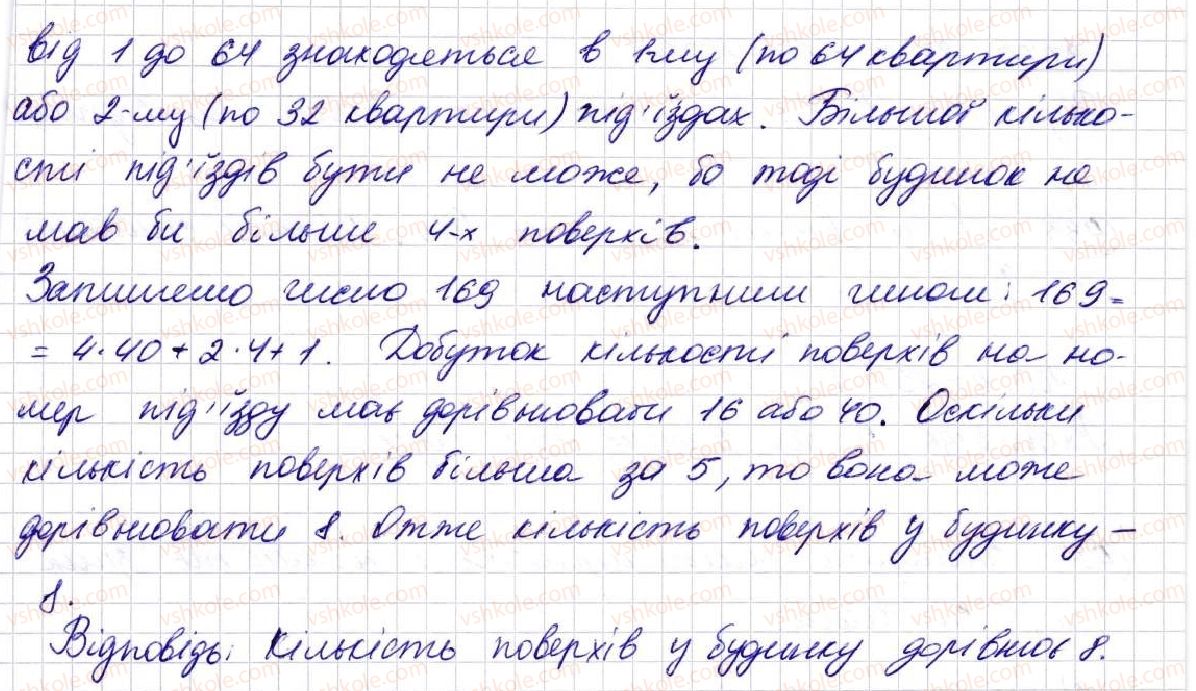 від 1 до 64 знаходяться в 1му (по 64 квартири)
або 2-му (по 32 квартири) під'їздах. Більшої кілько-
сті під'їздів бути не може, бо тоді будинок не
мав би більше 4-х поверхів.
Запишемо число 169 наступним чином: 169=
= 4·40+2·4+1. Добуток кількості поверхів на но-
мер під'їзду має дорівнювати 16 або 40. Оскільки
кількість поверхів більша за 5, то вона може
дорівнювати 8. Отже кількість поверхів у будинку –
8.
Відповідь: Кількість поверхів у будинку дорівнює 8.